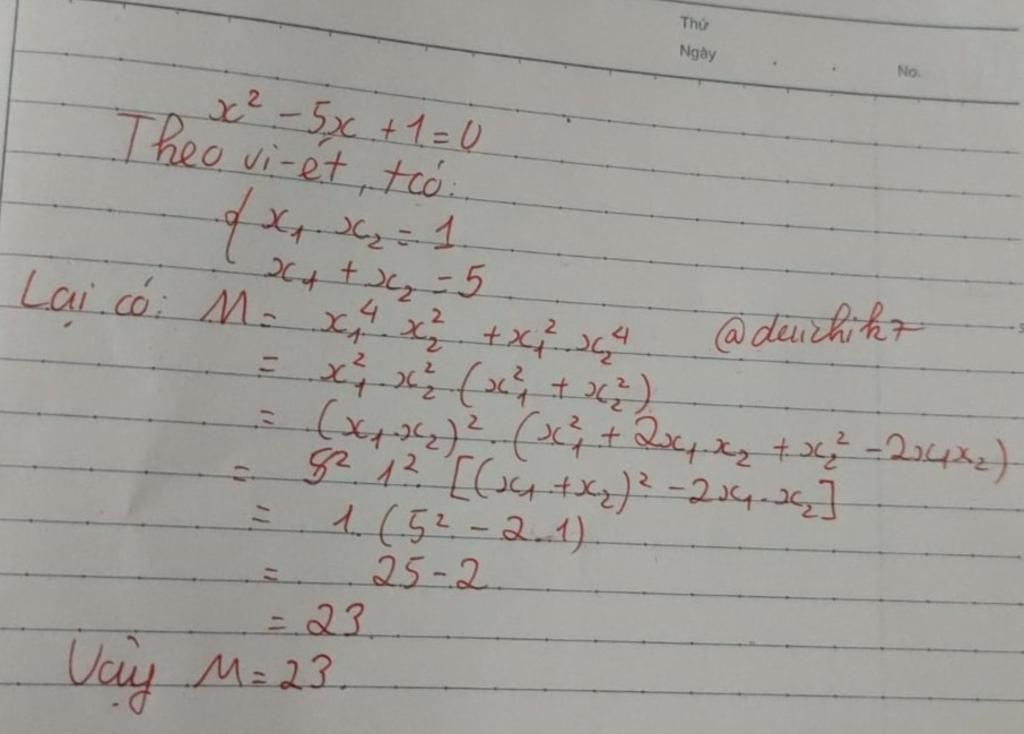 Thứ
Ngày
No.
x² - 5x + 1 = 0
Theo vi-ét, tcó:
{ x₁ . x₂ = 1
x₁ + x₂ = 5
Lại có: M = x₁⁴ . x₂² + x₁² . x₂⁴ @deuchiht
= x₁² . x₂² (x₁² + x₂²)
= (x₁ . x₂)² . (x₁² + 2x₁ . x₂ + x₂² - 2x₁x₂)
= 1² . [(x₁ + x₂)² - 2x₁ . x₂]
= 1 . (5² - 2 . 1)
= 25 - 2
= 23
Vậy M = 23.